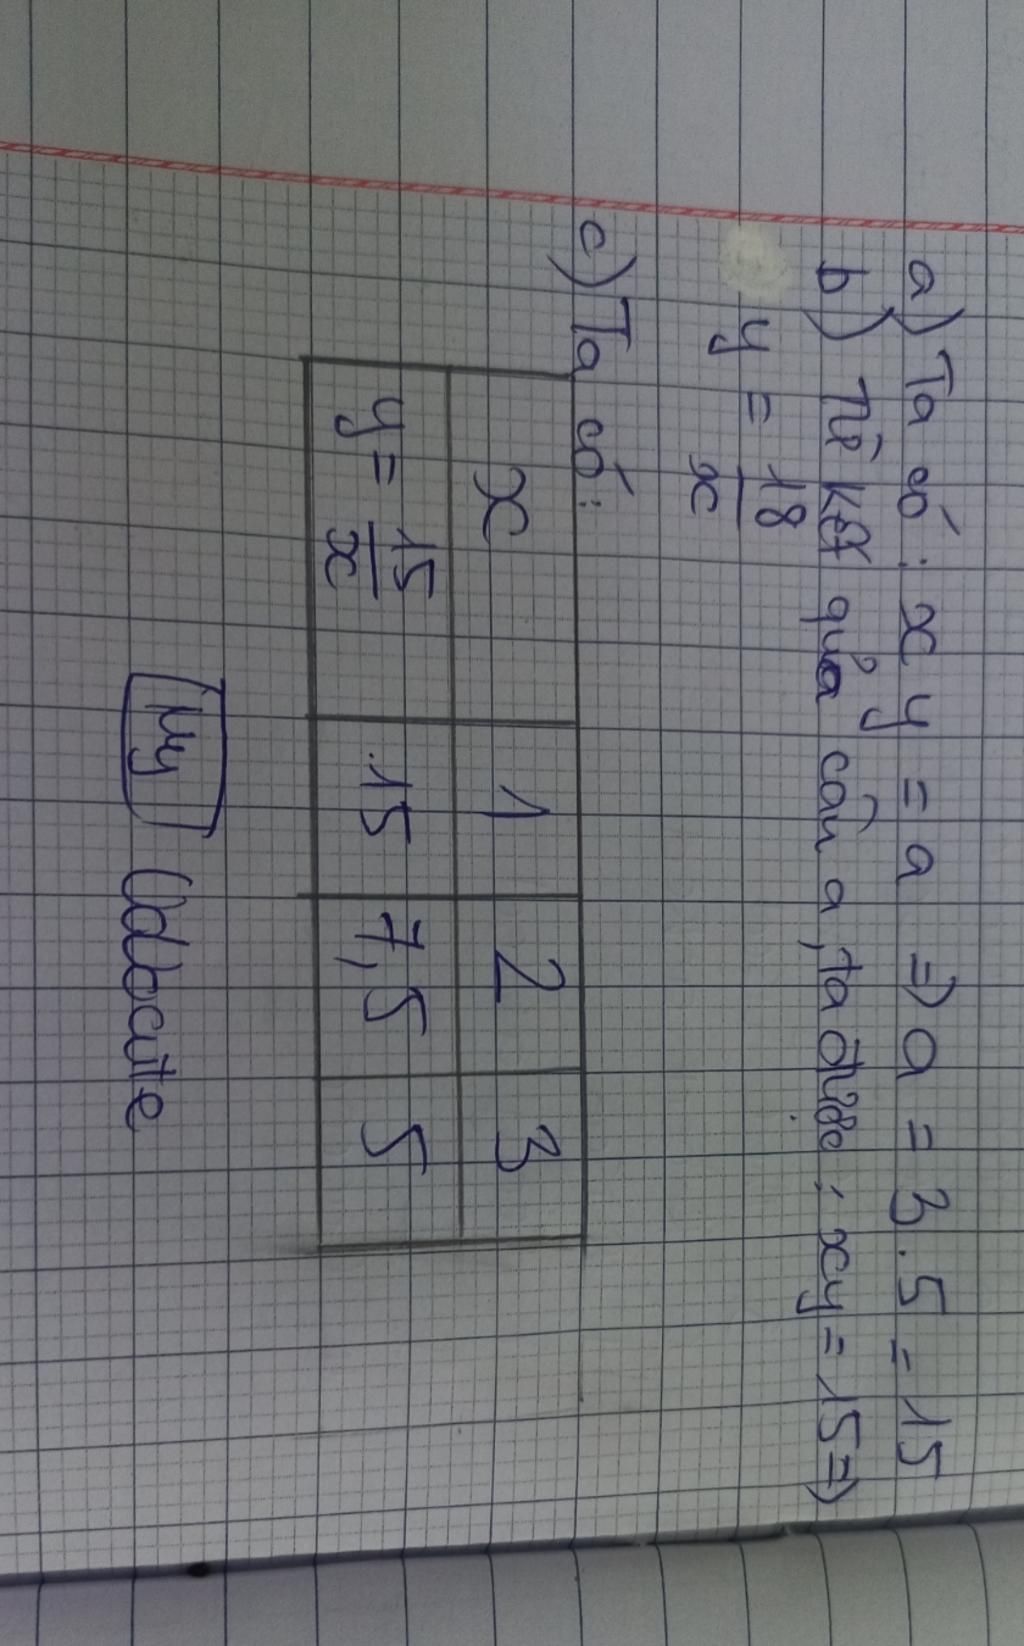 a) Ta có : xy = a => a = 3.5 = 15
b) Từ kết quả câu a, ta được : xy = 15 =>
y = 18/x
c) Ta có :
x 1 2 3
y = 15/x 15 7,5 5
My